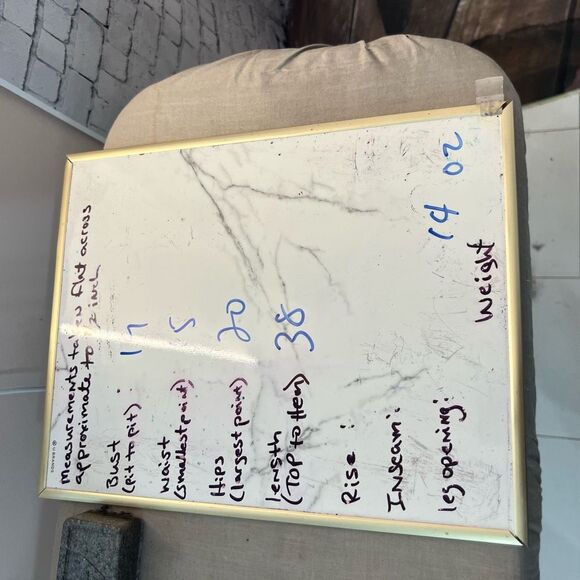 measurements taken flat across
approximate to inch
Bust
(pit to pit): 17
Waist
(smallest point):
Hips
(largest point) 20
Length
(Top to Hem) 38
Rise:
Inseam:
leg opening:
Weight 14 oz
U BRANDS